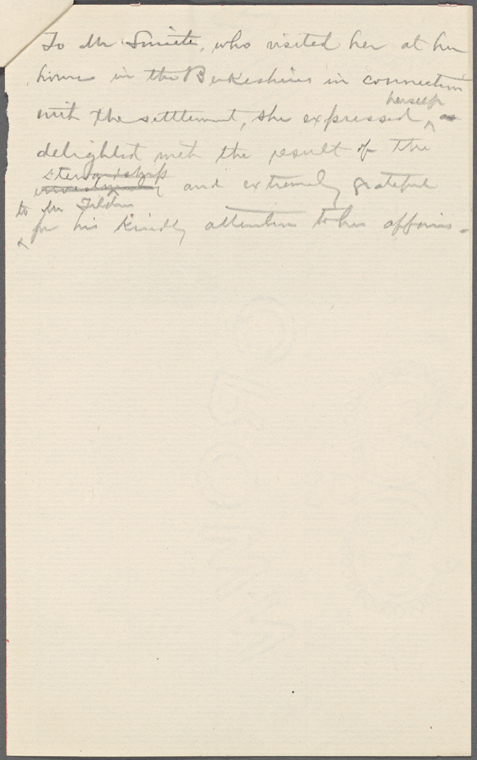 To Mr Smith, who visited her at her
home in the Berkshires in connection
with the settlement, she expressed herself as
delighted with the result of the
stewardship and extremely grateful
to Mr Tilden
for his kindly attention to her affairs.